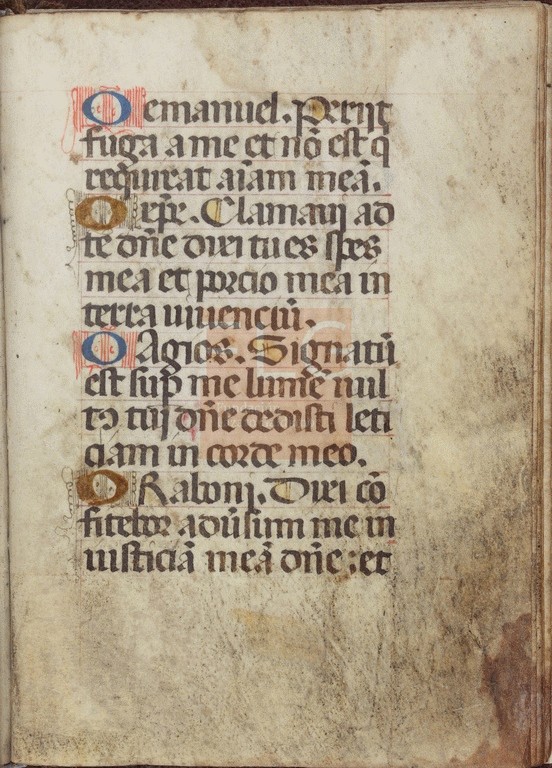 O emanuel. Perijt
fuga a me et nō est q
reqͥrat aīam meā.
O xp̄e. Clamauj ad
te dn̄e dixi tu es spes
mea et porcio mea in
terra viuenciū.
O Agios. Signatū
est sup̄ me lumē vul
tꝰ tuj dn̄e dedisti leti
ciam in corde meo.
O Rabonj. Dixi cō
fitebor adūsum me in
iusticiā meā dn̄e : et